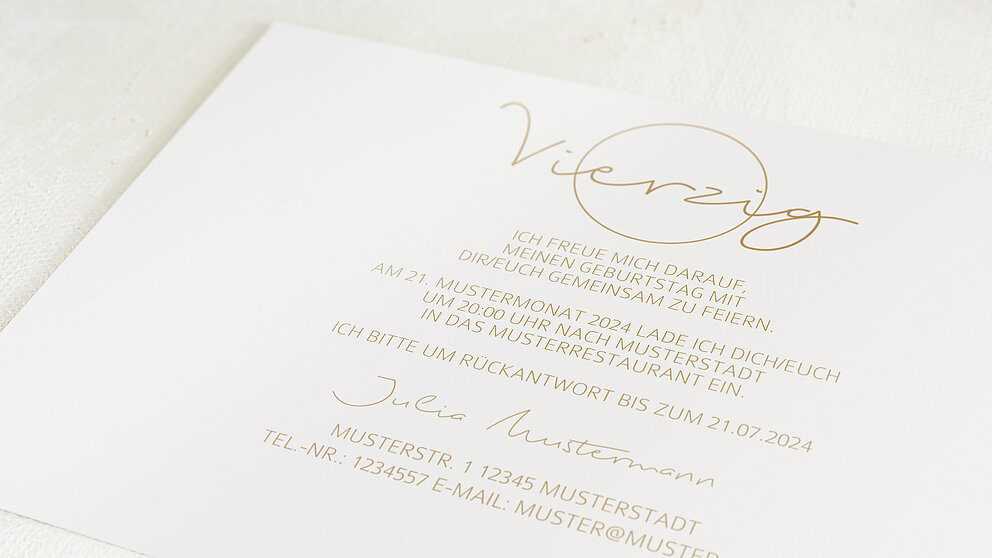 Vierzig
ICH FREUE MICH DARAUF,
MEINEN GEBURTSTAG MIT
DIR/EUCH GEMEINSAM ZU FEIERN.
AM 21. MUSTERMONAT 2024 LADE ICH DICH/EUCH
UM 20:00 UHR NACH MUSTERSTADT
IN DAS MUSTERRESTAURANT EIN.
ICH BITTE UM RÜCKANTWORT BIS ZUM 21.07.2024
Julia Mustermann
MUSTERSTR. 1 12345 MUSTERSTADT
TEL.-NR.: 1234557 E-MAIL: MUSTER@MUSTER